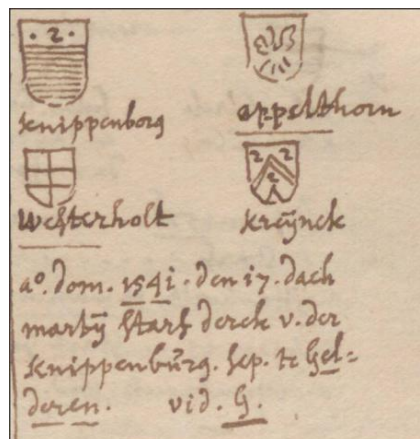 · 2 ·
Knippenborg
Appelthorn
2 2
2
Westerholt
Kreÿnck
a°. dom. 1541. den 17. dach
martÿ starf derck v. der
Knippenbŭrg. sep. te Gel=
deren. vid. G.